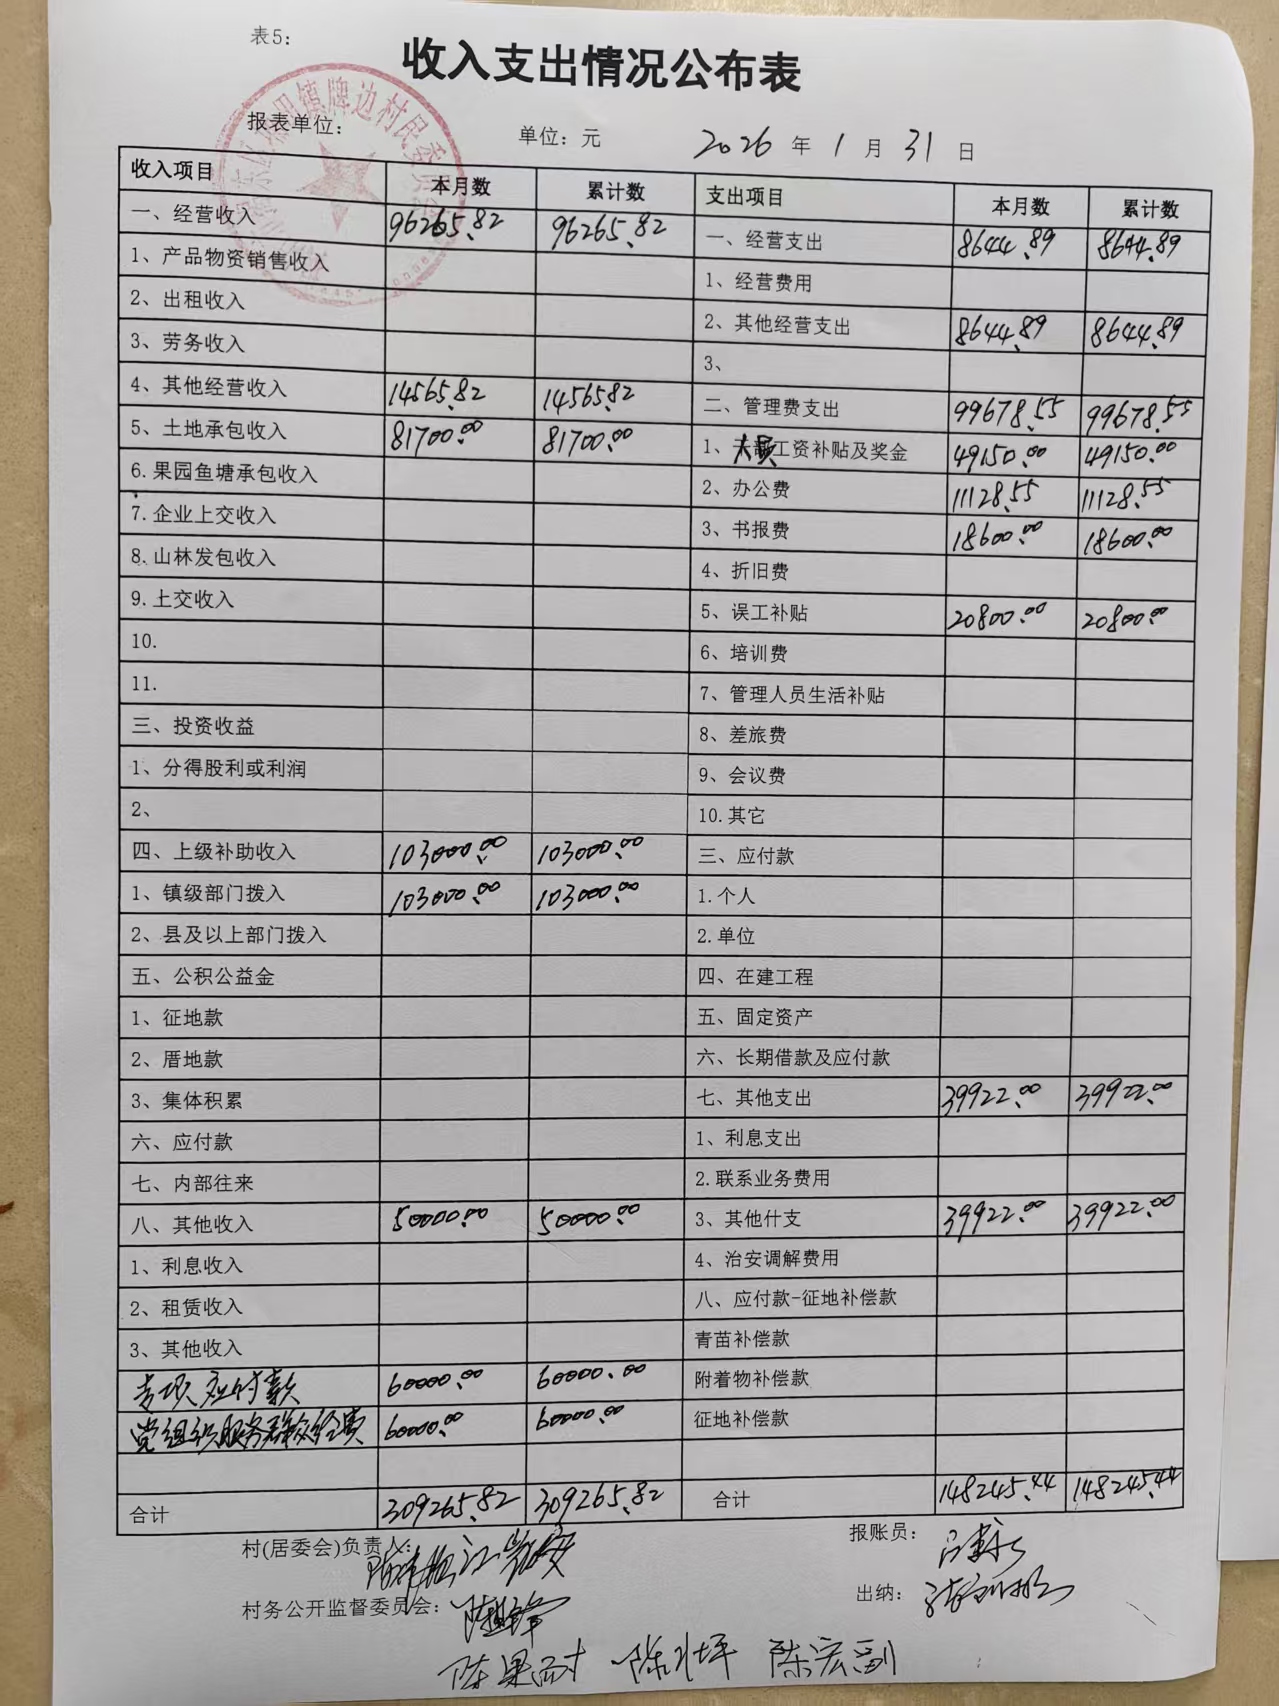 表5：
收入支出情况公布表
报表单位：
单位：元 2026 年 1 月 31 日
收入项目 本月数 累计数 支出项目 本月数 累计数
一、经营收入 96265.82 96265.82 一、经营支出 8644.89 8644.89
1、产品物资销售收入 1、经营费用
2、出租收入 2、其他经营支出 8644.89 8644.89
3、劳务收入 3、
4、其他经营收入 14565.82 14565.82 二、管理费支出 99678.55 99678.55
5、土地承包收入 81700.00 81700.00 1、人员工资补贴及奖金 49150.00 49150.00
6.果园鱼塘承包收入 2、办公费 11128.55 11128.55
7.企业上交收入 3、书报费 18600.00 18600.00
8.山林发包收入 4、折旧费
9.上交收入 5、误工补贴 20800.00 20800.00
10. 6、培训费
11. 7、管理人员生活补贴
三、投资收益 8、差旅费
1、分得股利或利润 9、会议费
2、 10.其它
四、上级补助收入 103000.00 103000.00 三、应付款
1、镇级部门拨入 103000.00 103000.00 1.个人
2、县及以上部门拨入 2.单位
五、公积公益金 四、在建工程
1、征地款 五、固定资产
2、厝地款 六、长期借款及应付款
3、集体积累 七、其他支出 39922.00 39922.00
六、应付款 1、利息支出
七、内部往来 2.联系业务费用
八、其他收入 50000.00 50000.00 3、其他什支 39922.00 39922.00
1、利息收入 4、治安调解费用
2、租赁收入 八、应付款-征地补偿款
3、其他收入 青苗补偿款
专项应付款 60000.00 60000.00 附着物补偿款
党组织服务群众经费 60000.00 60000.00 征地补偿款
合计 309265.82 309265.82 合计 148245.44 148245.44
村(居委会)负责人： 报账员：
村务公开监督委员会： 出纳：
陈宏副